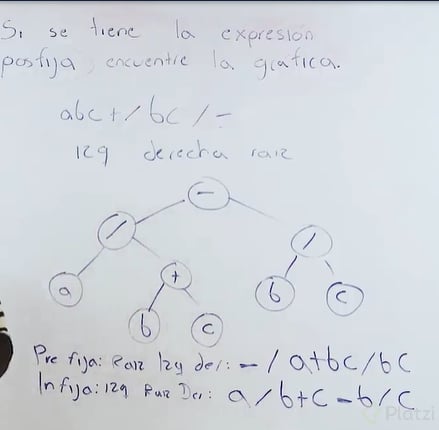 Si se tiene la expresión
posfija, encuentre la grafica.
abc+/bc/-
izq derecha raiz
-
/ /
a + b c
b c
Pre fija: Raiz Izq der: -/a+bc/bc
Infija: izq Raiz Der: a/b+c-b/c
Platzi